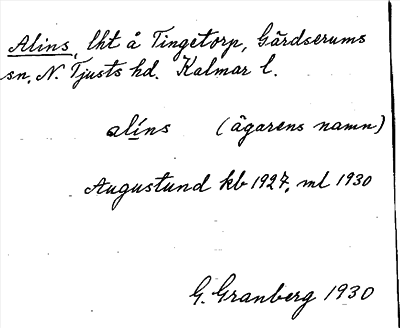 Alins, lht å Tingetorp, Gärdserums
sn, N. Tjusts hd. Kalmar l.
alíns (ägarens namn)
Augustund kb 1927, ml 1930
G. Granberg 1930